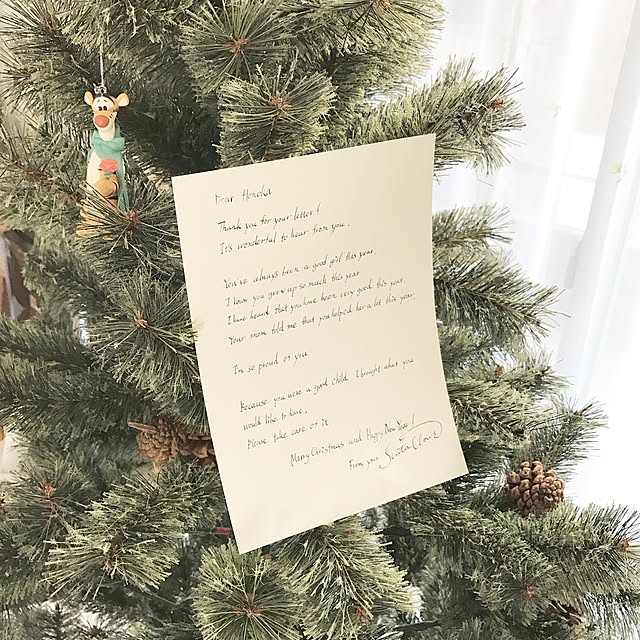 Dear Honoka
Thank you for your letter!
It's wonderful to hear from you.
You've always been a good girl this year.
I know you grew up so much this year
I have heard that you have been very good this year.
Your mom told me that you helped her a lot this year.
I'm so proud of you
Because you were a good child, I brought what you
would like to have.
Please take care of it
Merry Christmas and Happy New Year!
From your Santa Claus